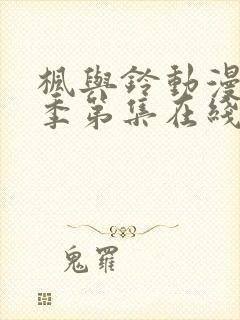 楓與鈴動漫
季第集在綫
鬼羅